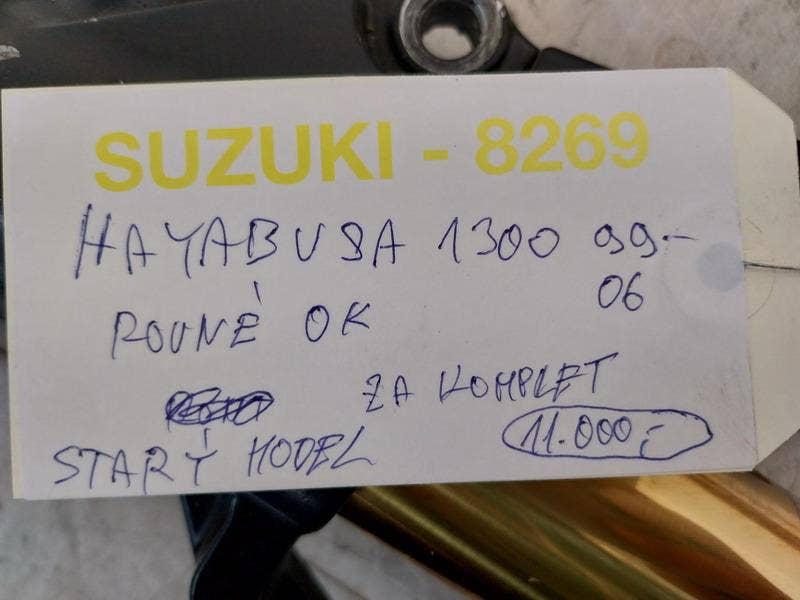 SUZUKI - 8269
HAYABUSA 1300 99-
06
ROVNÉ OK
ZA KOMPLET
11.000,-
STARÝ MODEL